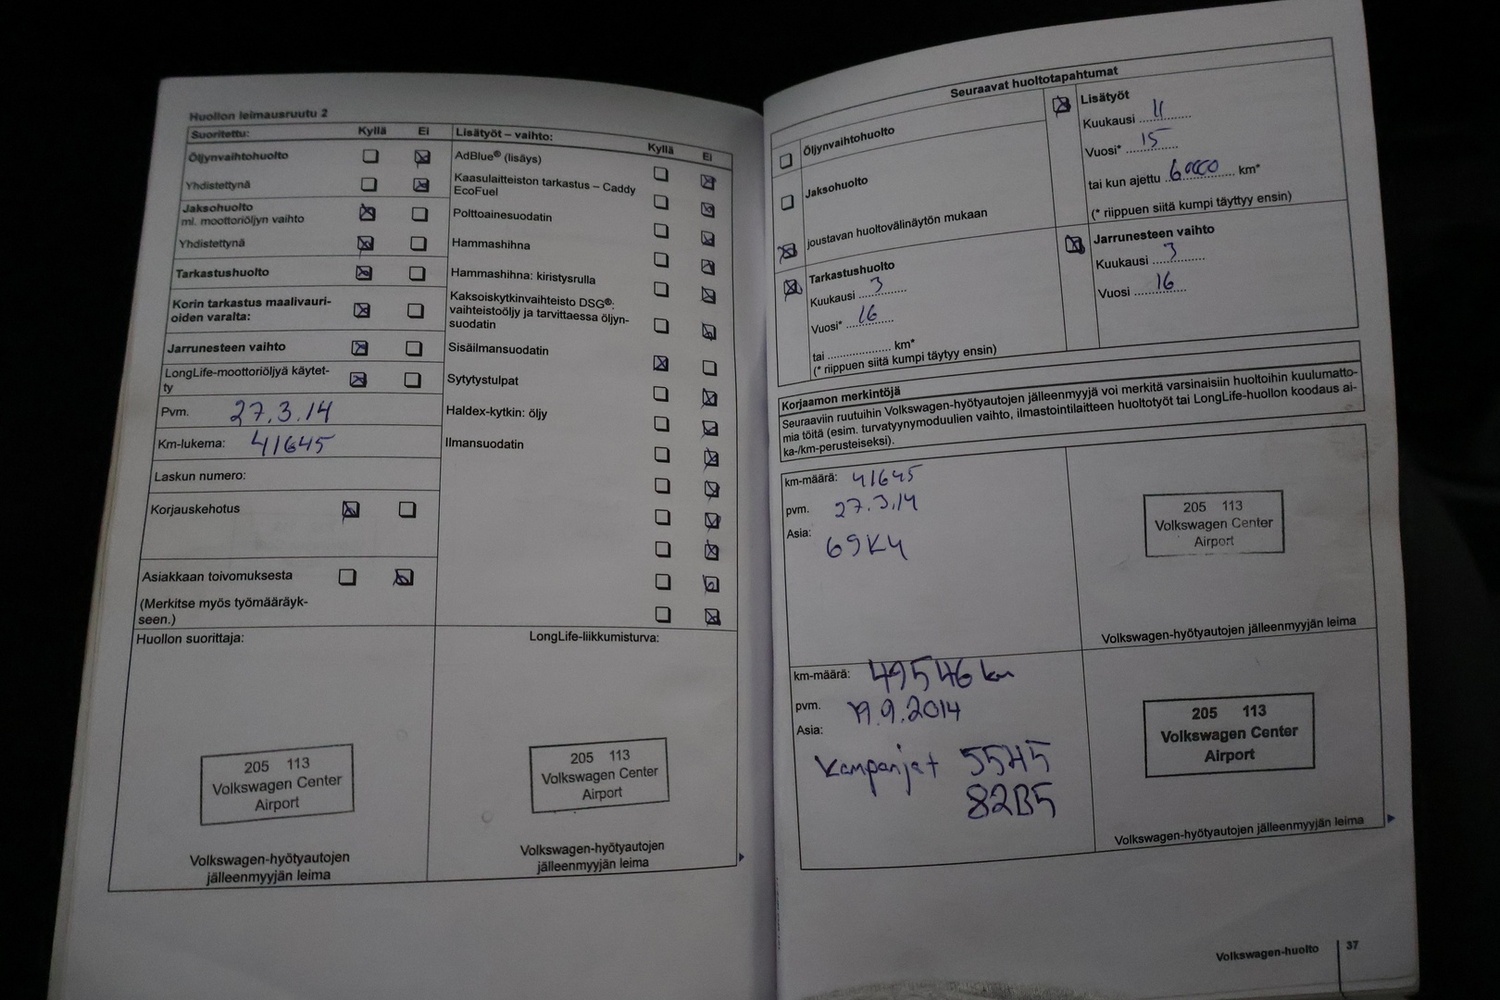 Huollon leimausruutu 2
Suoritettu: Kyllä Ei
Öljynvaihtohuolto
Yhdistettynä
Jaksohuolto
ml. moottoriöljyn vaihto
Yhdistettynä
Tarkastushuolto
Korin tarkastus maalivauri-
oiden varalta:
Jarrunesteen vaihto
LongLife-moottoriöljyä käytet-
ty
Pvm. 27.3.14
Km-lukema: 41645
Laskun numero:
Korjauskehotus
Asiakkaan toivomuksesta
(Merkitse myös työmääräyk-
seen.)
Huollon suorittaja:
205 113
Volkswagen Center
Airport
Volkswagen-hyötyautojen
jälleenmyyjän leima
Lisätyöt – vaihto: Kyllä Ei
AdBlue® (lisäys)
Kaasulaitteiston tarkastus – Caddy
EcoFuel
Polttoainesuodatin
Hammashihna
Hammashihna: kiristysrulla
Kaksoiskytkinvaihteisto DSG®:
vaihteistoöljy ja tarvittaessa öljyn-
suodatin
Sisäilmansuodatin
Sytytystulpat
Haldex-kytkin: öljy
Ilmansuodatin
LongLife-liikkumisturva:
205 113
Volkswagen Center
Airport
Volkswagen-hyötyautojen
jälleenmyyjän leima
Seuraavat huoltotapahtumat
Öljynvaihtohuolto
Jaksohuolto
joustavan huoltovälinäytön mukaan
Tarkastushuolto
Kuukausi 3
Vuosi* 16
tai .................. km*
(* riippuen siitä kumpi täytyy ensin)
Lisätyöt
Kuukausi 11
Vuosi* 15
tai kun ajettu 60000 km*
(* riippuen siitä kumpi täyttyy ensin)
Jarrunesteen vaihto
Kuukausi 3
Vuosi 16
Korjaamon merkintöjä
Seuraaviin ruutuihin Volkswagen-hyötyautojen jälleenmyyjä voi merkitä varsinaisiin huoltoihin kuulumatto-
mia töitä (esim. turvatyynymoduulien vaihto, ilmastointilaitteen huoltotyöt tai LongLife-huollon koodaus ai-
ka-/km-perusteiseksi).
km-määrä: 41645
pvm. 27.3.14
Asia:
69K4
205 113
Volkswagen Center
Airport
Volkswagen-hyötyautojen jälleenmyyjän leima
km-määrä: 49546 km
pvm. 19.9.2014
Asia:
Kampanjat 55H5
82B5
205 113
Volkswagen Center
Airport
Volkswagen-hyötyautojen jälleenmyyjän leima
Volkswagen-huolto 37